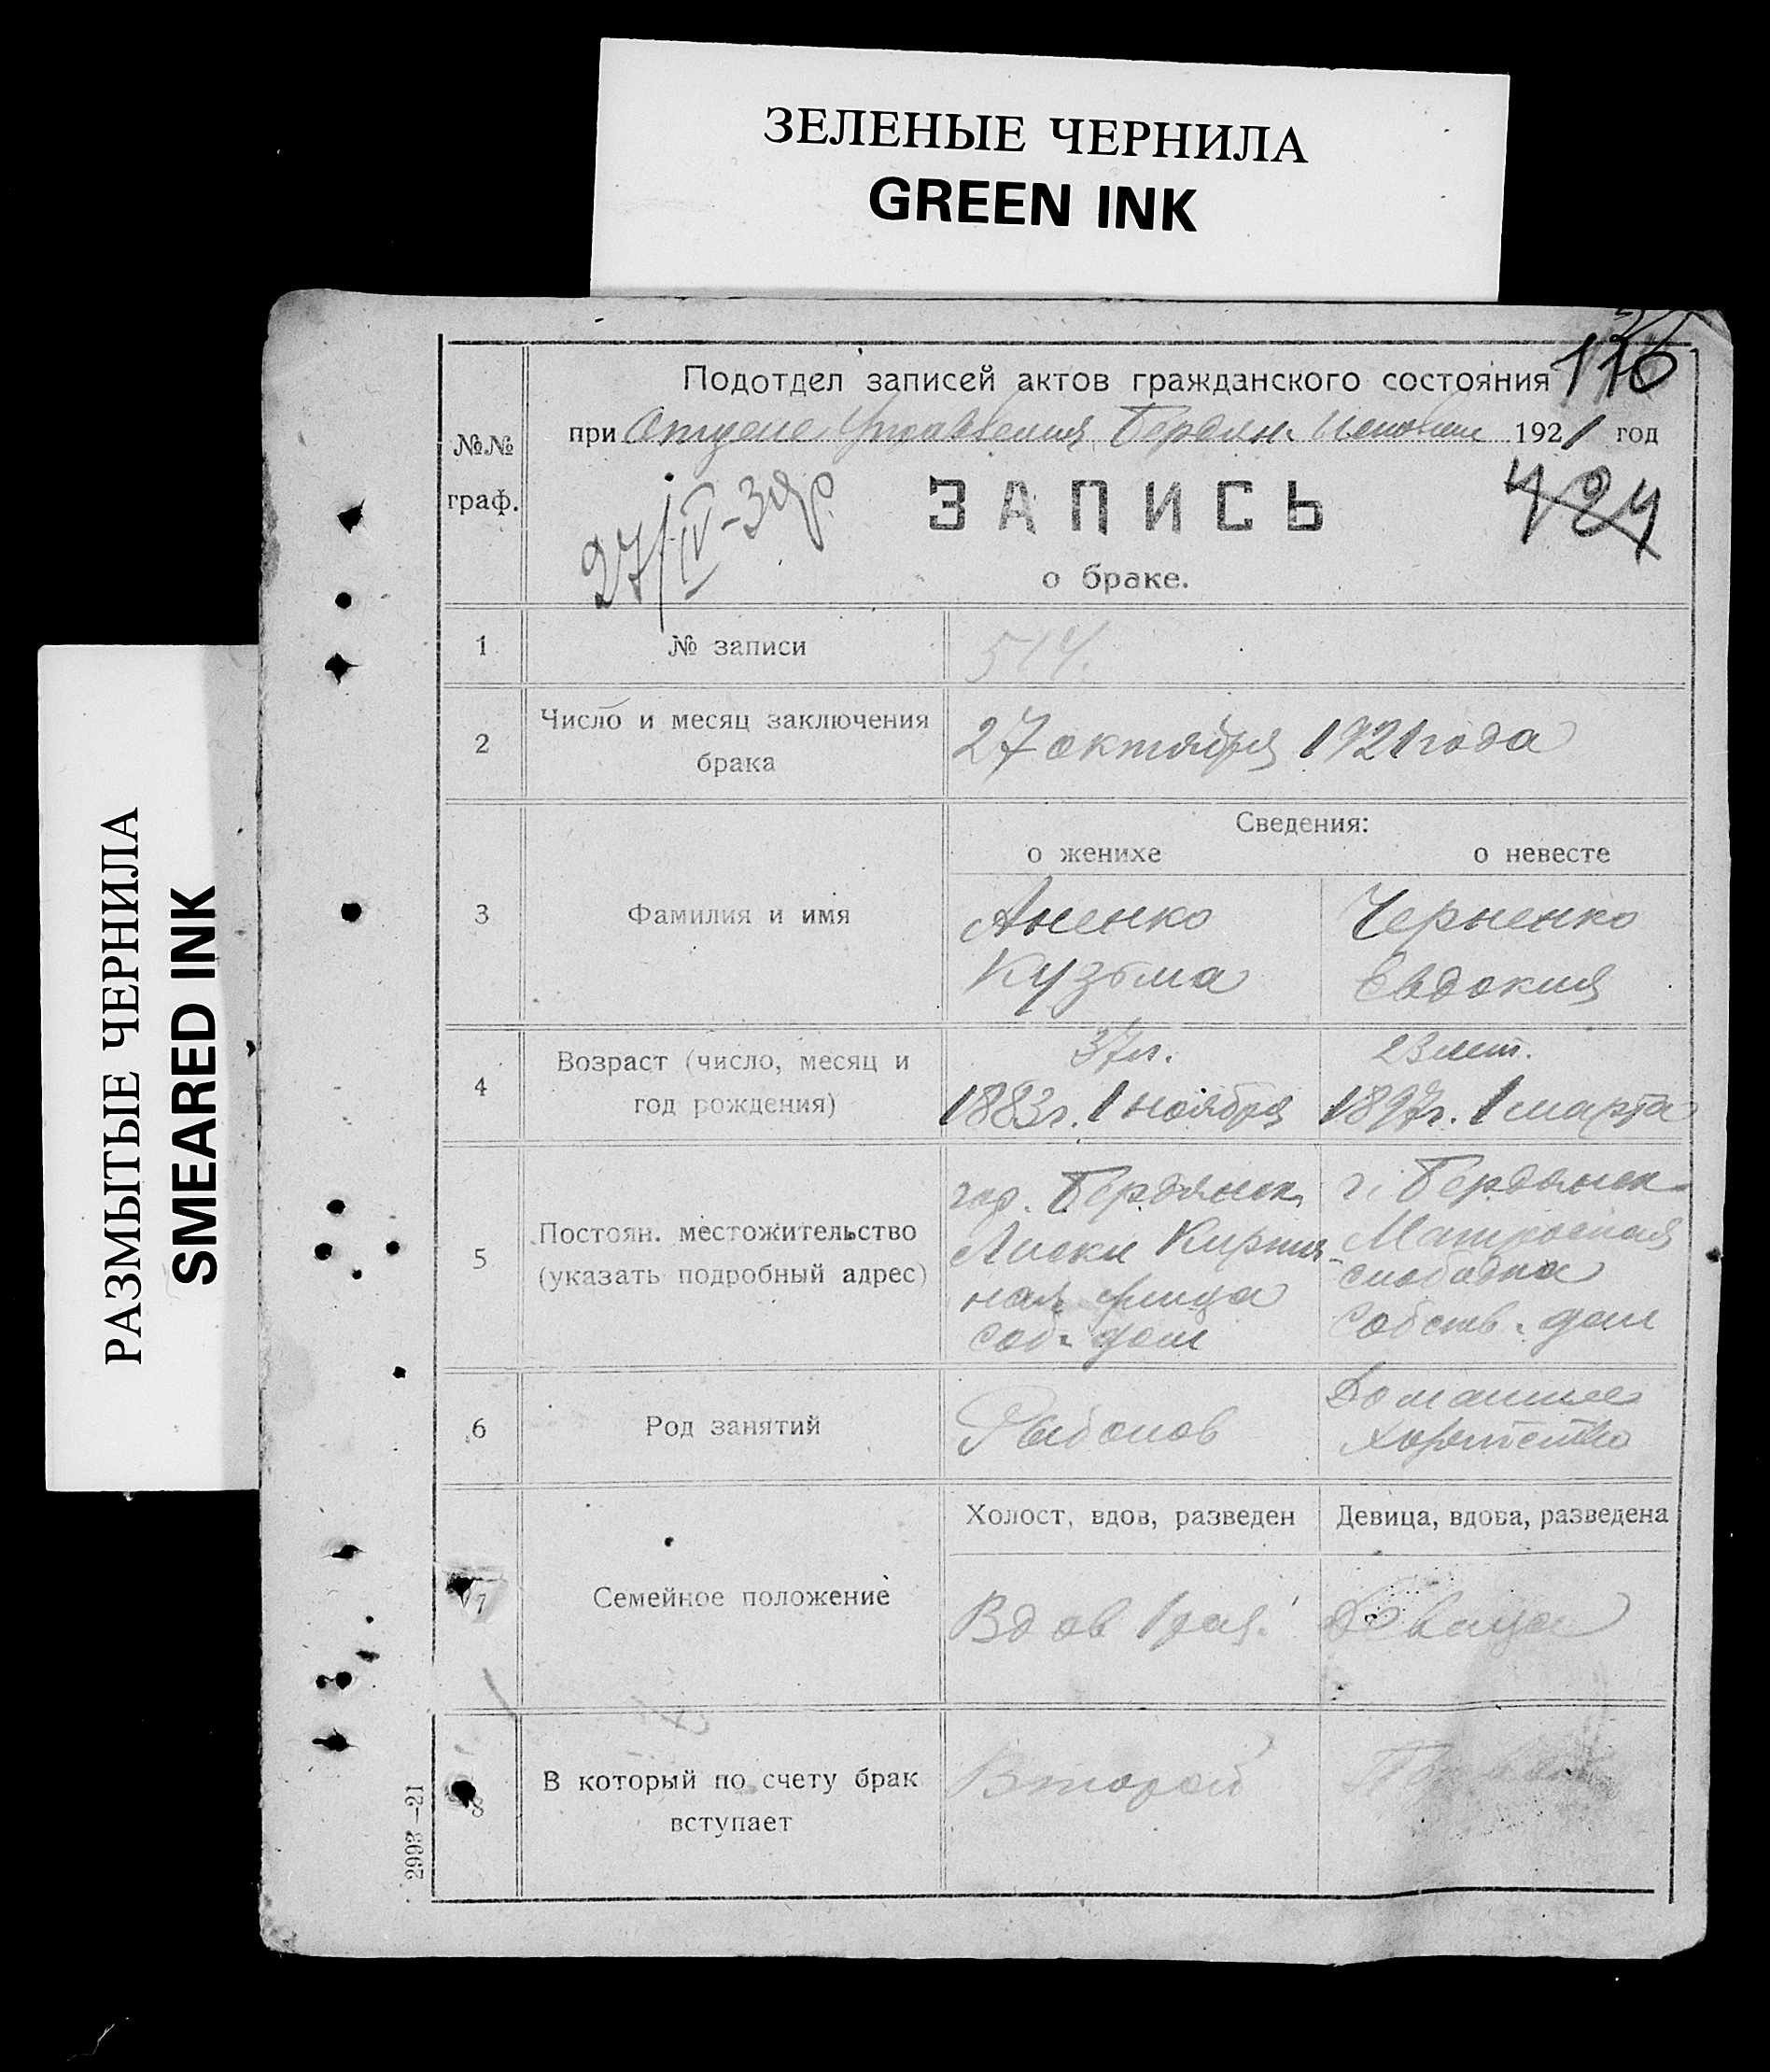 ЗЕЛЕНЫЕ ЧЕРНИЛА
GREEN INK
РАЗМЫТЫЕ ЧЕРНИЛА
SMEARED INK
116
Подотдел записей актов гражданского состояния
при Отделе Управления Бердян. Исполком 1921 год
№№
граф.
27/IV-
424
ЗАПИСЬ
о браке.
1 № записи 514.
2 Число и месяц заключения
брака
27 октября 1921 года
Сведения:
о женихе о невесте
3 Фамилия и имя
Аненко Черненко
Кузьма Евдокия
4 Возраст (число, месяц и
год рождения)
37 л. 23 лет.
1883 г. 1 ноября 1897 г. 1 марта
5 Постоян. местожительство
(указать подробный адрес)
гор. Бердянск г. Бердянск
Лиски Кирпич- Матросская
ная улица слободка
соб. дом Собств. дом
6 Род занятий
Рыболов Домашнее
хозяйство
Холост, вдов, разведен Девица, вдова, разведена
7 Семейное положение
Вдов 1 раз. Девица
8 В который по счету брак
вступает
Второй Первый
2993—21